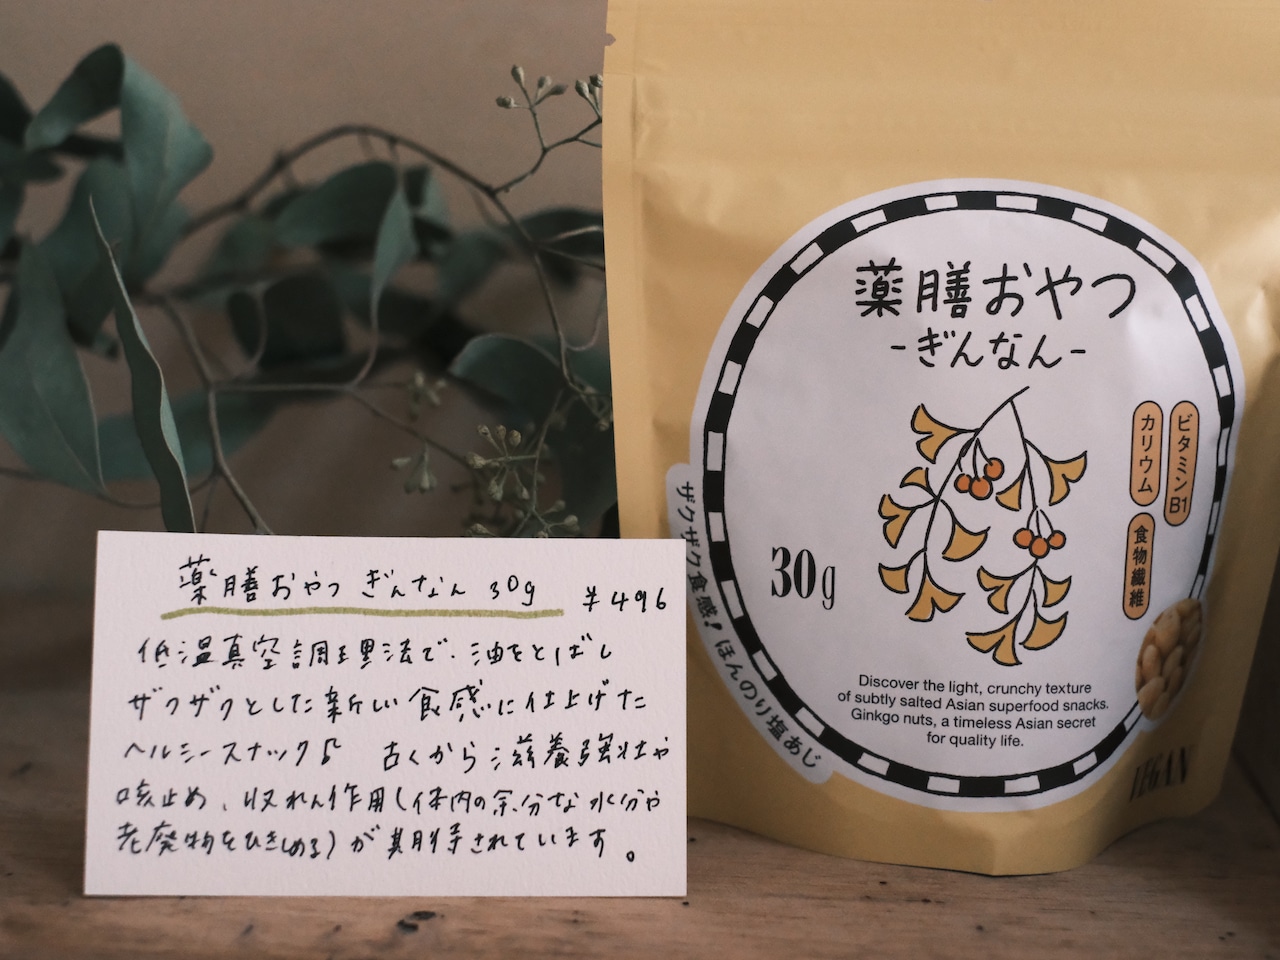 薬膳おやつ ぎんなん 30g ¥496
低温真空調理法で、油をとばし
ザクザクとした新しい食感に仕上げた
ヘルシースナック♪ 古くから滋養強壮や
咳止め、収れん作用(体内の余分な水分や
老廃物をひきしめる)が期待されています。
薬膳おやつ
-ぎんなん-
カリウム
ビタミンB1
食物繊維
30g
ザクザク食感!ほんのり塩あじ
Discover the light, crunchy texture
of subtly salted Asian superfood snacks.
Ginkgo nuts, a timeless Asian secret
for quality life.
VEGAN